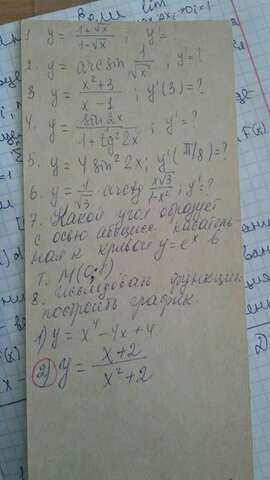 1. y = (1+√x)/(1-√x) ; y' = ?
2. y = arcsin 1/√x ; y' = ?
3. y = (x²+3)/(x-1) ; y'(3) = ?
4. y = sin2x/(1+tg²2x) ; y' = ?
5. y = 4 sin²2x; y'(π/8) = ?
6. y = 1/√3 · arctg x√3/(1-x²) ; y' = ?
7. Какой угол образует
с осью абсцисс касатель
ная к кривой y = eˣ в
т. M(0;1)
8. исследовать функции
построить график.
1) y = x⁴-4x+4
2) y = (x+2)/(x²+2)